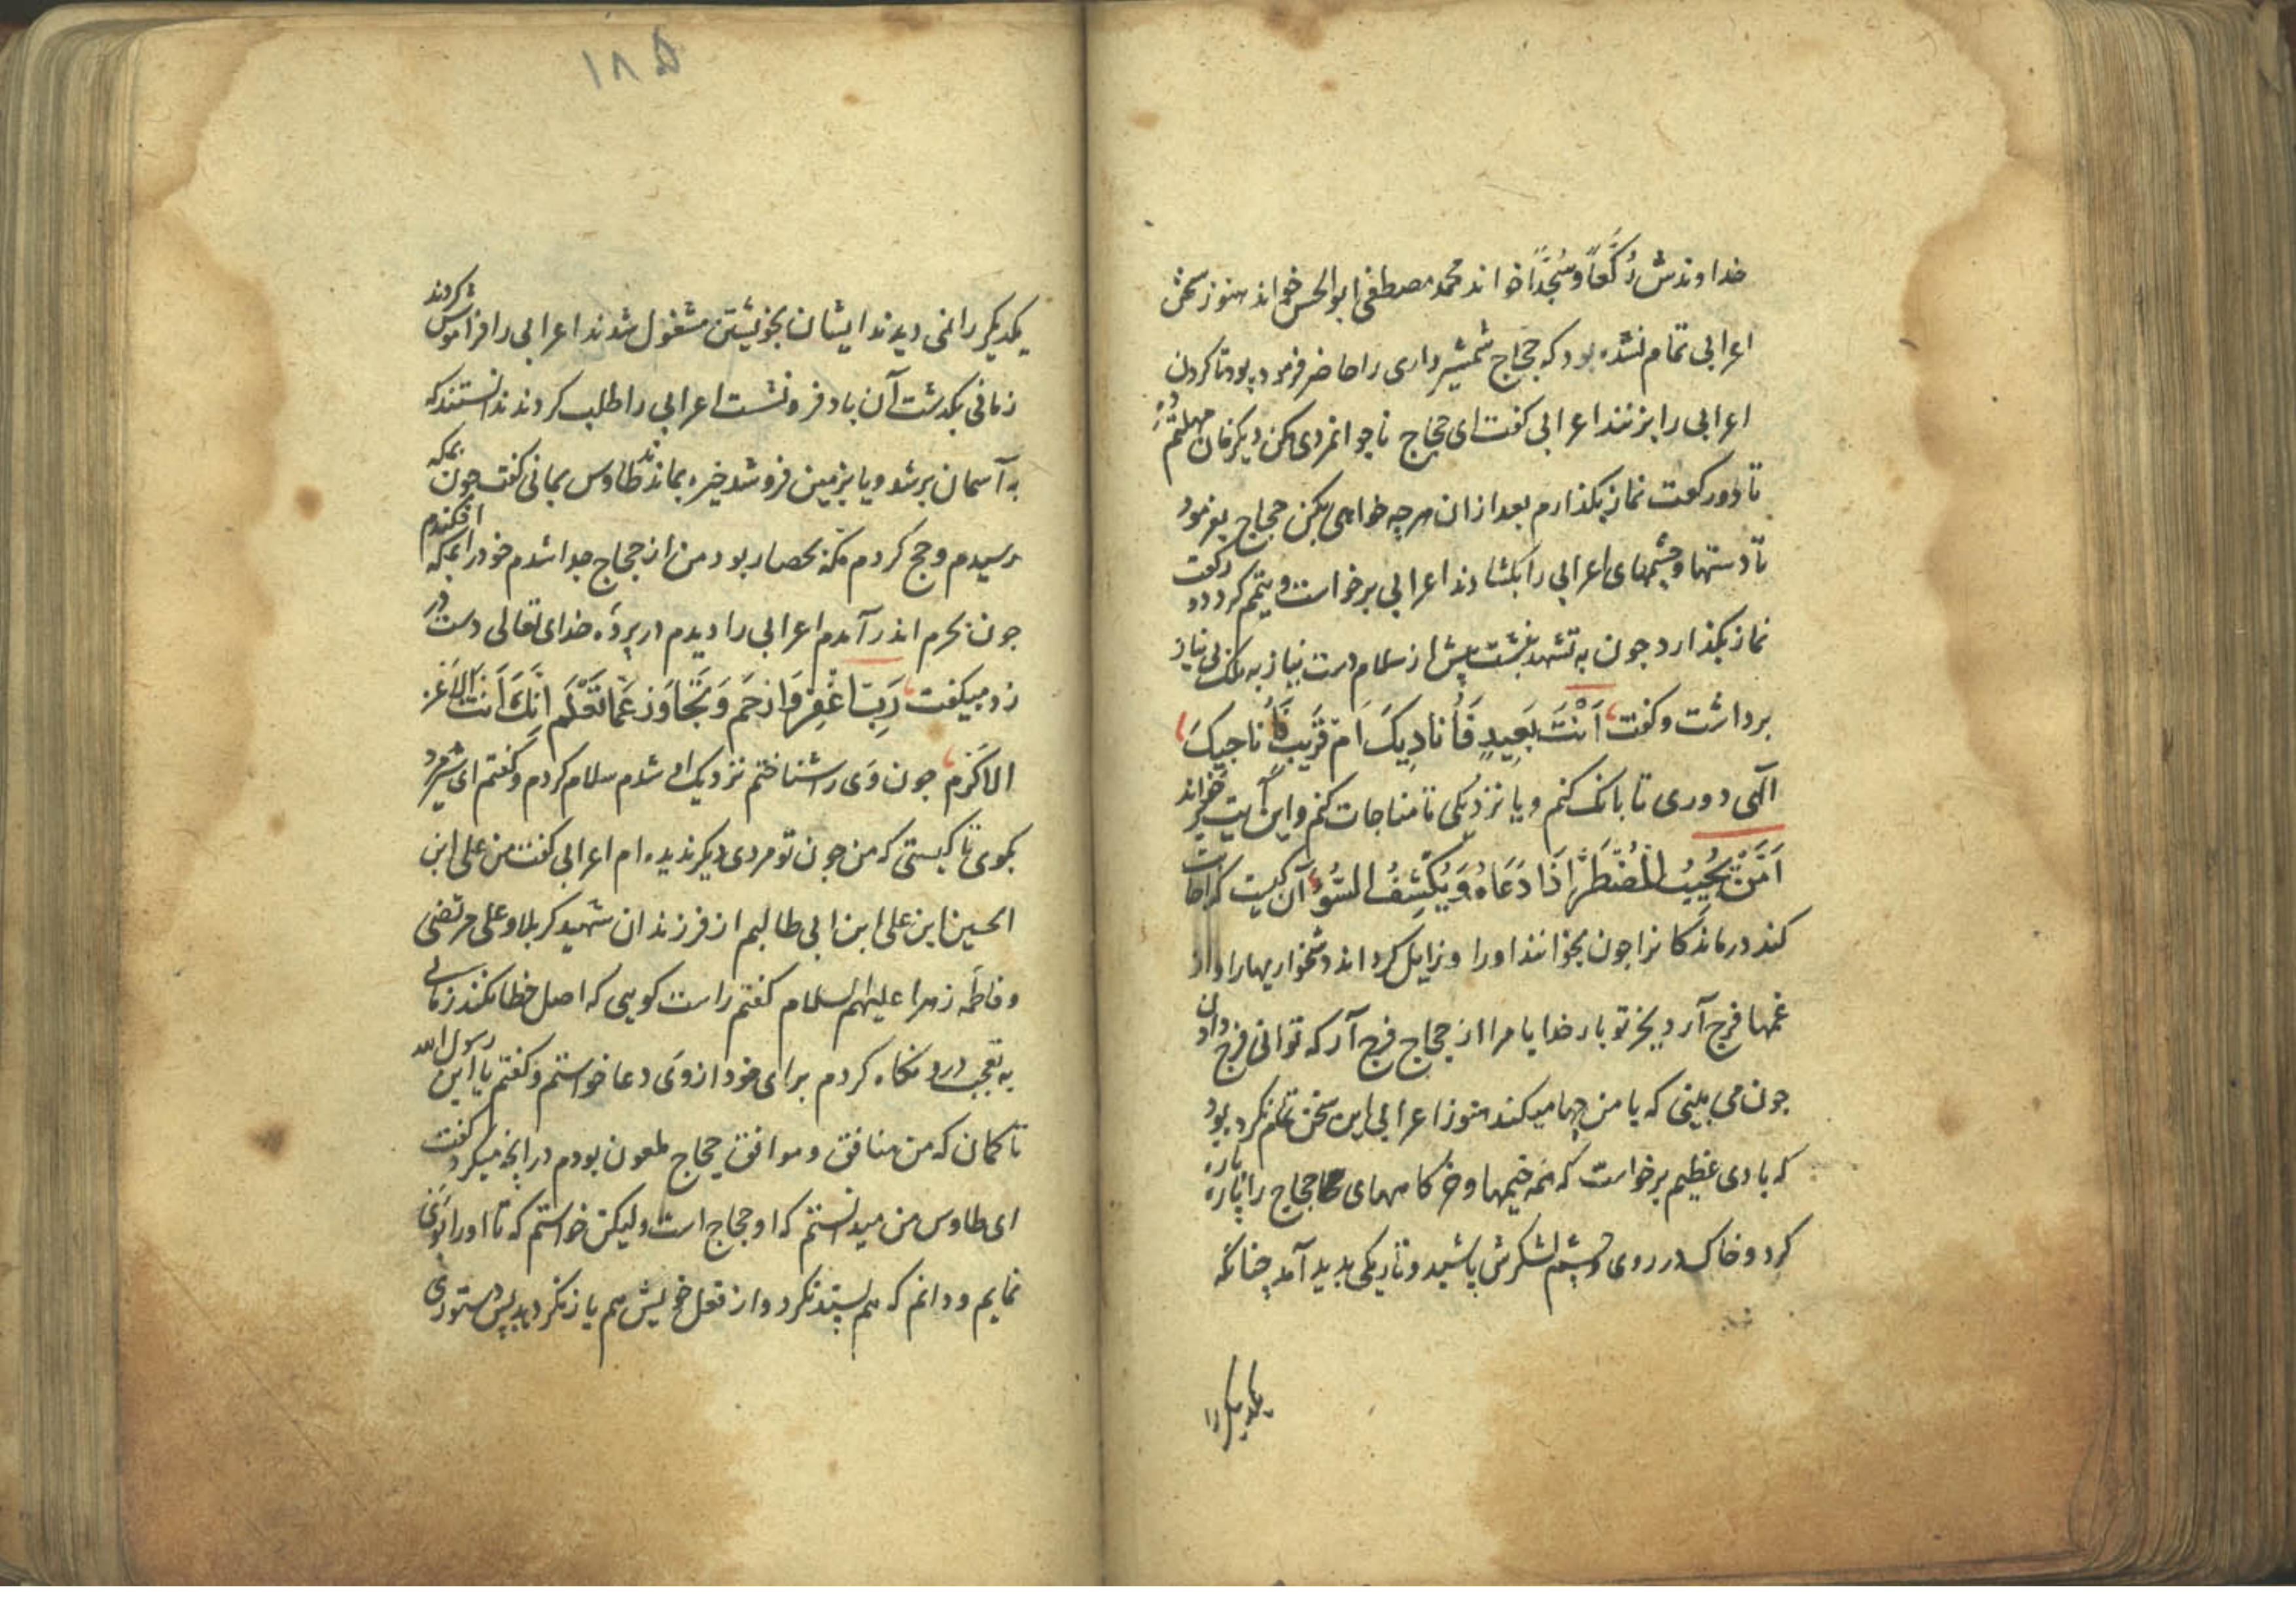 خداوندش رُكَّعاً وسُجَّداً خواند محمد مصطفی ابوالحسن خواند هنوز سخن
اعرابی تمام نشده بود که حجاج شمشیر داری را حاضر فرموده بود تا کردن
اعرابی را بزنند اعرابی کفت ای حجاج ناجوانمردی مکن دیکر مهلتم ده
تا دو رکعت نماز بکذارم بعد ازان هرچه خواهی بکن حجاج بفرمود
تا دستها و چشمهای اعرابی را بکشادند اعرابی برخاست و تیمم کرد دو رکعت
نماز بکذارد جون به تشهد بنشست پیش از سلام دست نیاز به ملک بی نیاز
برداشت و کفت اَنْتَ بَعِیدٍ فَاُنادِیکَ اَم قَرَیبٌ فَاُناجِیکَ
الهی دوری تا بانک کنم و یا نزدیکی تا مناجات کنم و این آیت برخواند
اَمَّنْ یُجِیبُ الْمُضْطَرَّ اِذَا دَعَاهُ وَیَکْشِفُ السُّوءَ آن کیست که اجابت
کند درماندکانرا جون بخوانند اورا و زایل کرداند دشخواریهارا واز
غمها فرج آرد بجز تو بار خدایا مرا از حجاج فرج آر که توانی فرج دادن
جون می بینی که با من چها میکند هنوز اعرابی این سخن تمام نکرده بود
که بادی عظیم برخاست که همه خیمها و خرکاههای حجاج را پاره پاره
کرد و خاک در روی و چشم لشکرش پاشید و تاریکی بدید آمد چنانکه
یکدیکررا
۱۸۵
یکدیکر را نمی دیدند ایشان بخویشتن مشغول شدند اعرابی را فراموش کردند
زمانی بکذشت آن باد فرونشست اعرابی را طلب کردند ندانستند که
به آسمان برشد و یا بزمین فروشد خیره بماندند طاوس یمانی کفت جون بمکه
برسیدم و حج کردم من از حجاج جدا شدم خودرا بمکه افکندم
جون بحرم اندر آمدم اعرابی را دیدم در پرده خدای تعالی دست در
زد و میکفت رَبِّ اغْفِرْ وَارْحَم وَتَجَاوَز عَمَّا تَعْلَم اِنَّکَ اَنْتَ الاَعَز
الاَکْرَم جون وی را شناختم نزدیک او شدم سلام کردم و کفتم ای شیرمرد
بکوی تا کیستی که من جون تو مردی دیکر ندیده ام اعرابی کفت من علی ابن
الحسین ابن علی ابن ابی طالبم از فرزندان شهید کربلا و علی مرتضی
و فاطمه زهرا علیهم السلام کفتم راست کویی که اصل خطا نکند زمانی
به تعجب درو نکاه کردم برای خود از وی دعا خواستم و کفتم یا ابن رسول الله
تا کمان که من منافق و موافق حجاج ملعون بودم در آنچه میکرد کفت
ای طاوس من میدانستم که او حجاج است ولیکن خواستم که تا اورا
نمایم و دانم که هم پسند نکرد و از فعل خویش هم باز نکردید پس دستوری